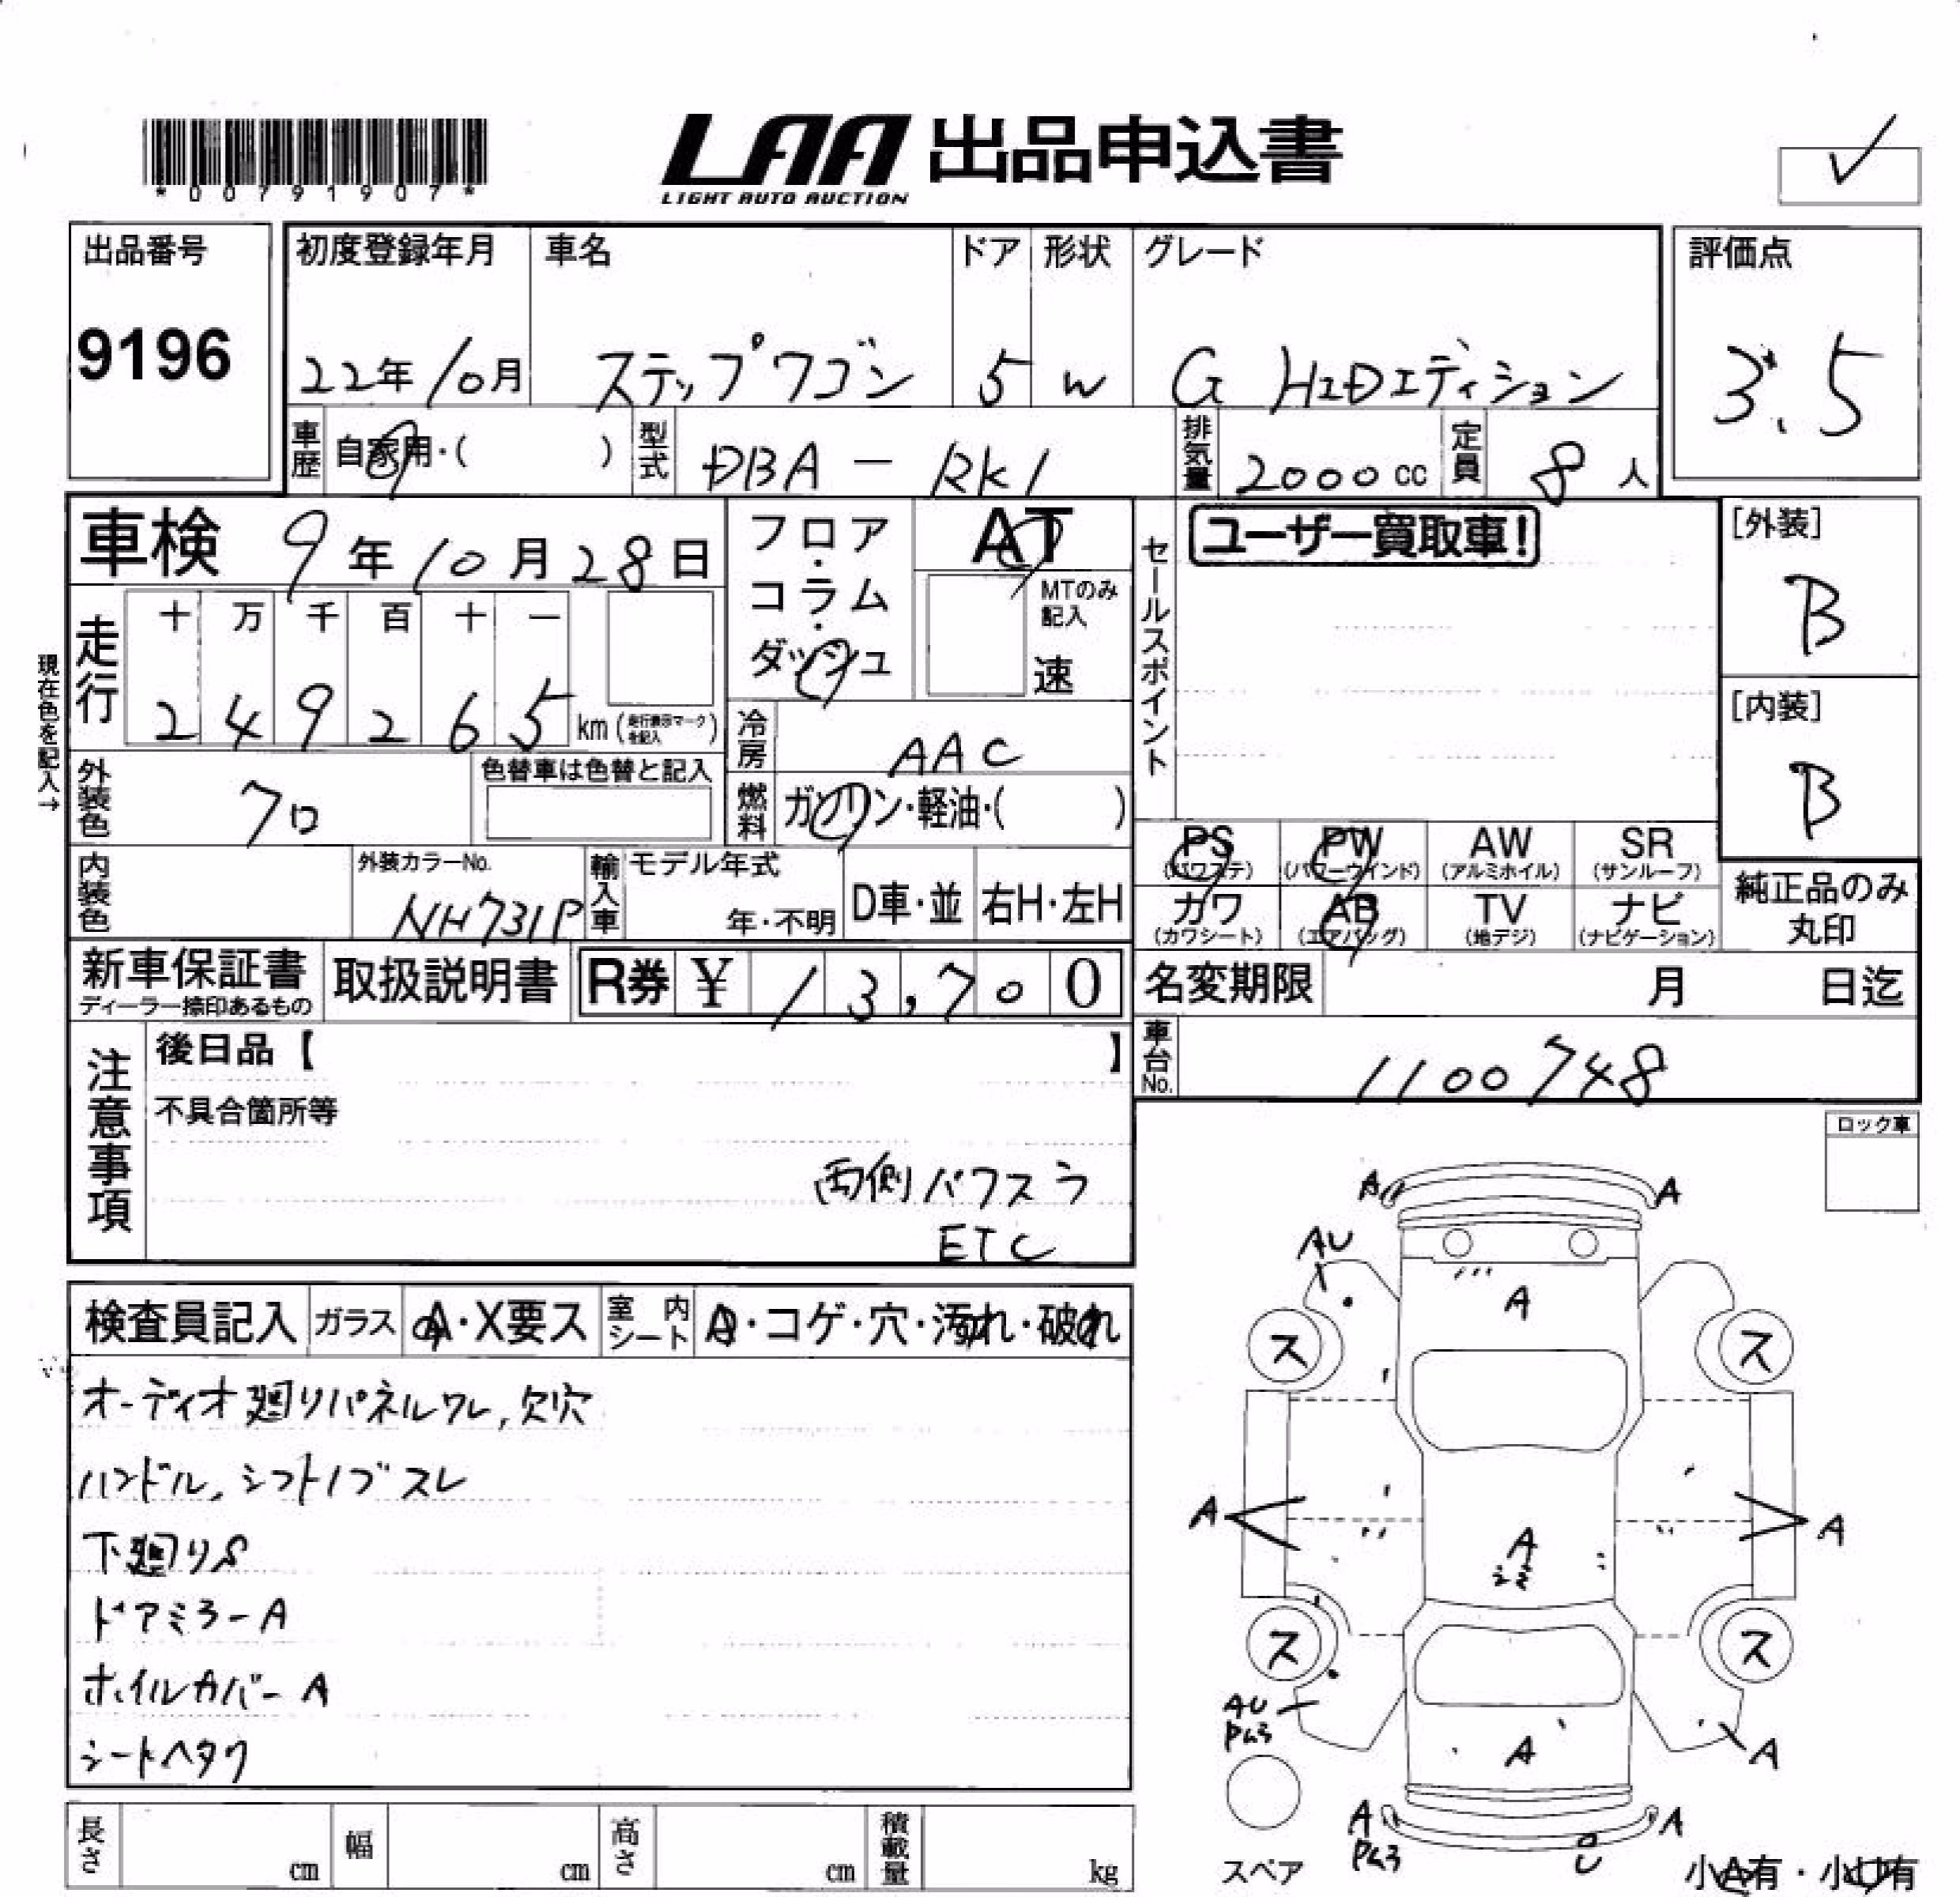 *00791907*
LAA 出品申込書
LIGHT AUTO AUCTION
出品番号
9196
初度登録年月
22年10月
車名
ステップワゴン
ドア
5
形状
W
グレード
G HIDエディション
評価点
3.5
車歴
自家用・( )
型式
DBA - RK1
排気量
2000cc
定員
8人
車検 9年10月28日
フロア・コラム・ダッシュ
AT
MTのみ記入
速
セールスポイント
ユーザー買取車!
[外装]
B
[内装]
B
現在色を記入→
走行
十 万 千 百 十 一
2 4 9 2 6 5 km (走行表示マークを記入)
冷房
AAC
外装色
クロ
色替車は色替と記入
燃料
ガソリン・軽油・( )
PS
(パワステ)
PW
(パワーウインド)
AW
(アルミホイル)
SR
(サンルーフ)
カワ
(カワシート)
AB
(エアバッグ)
TV
(地デジ)
ナビ
(ナビゲーション)
純正品のみ
丸印
内装色
外装カラーNo.
NH731P
輸入車
モデル年式
年・不明
D車・並
右H・左H
新車保証書
ディーラー捺印あるもの
取扱説明書
R券 ¥ 13,700
名変期限 月 日迄
車台No.
1100748
注意事項
後日品【 】
不具合箇所等
両側パワスラ
ETC
ロック車
検査員記入
ガラス
A・X要ス
室内シート
A・コゲ・穴・汚れ・破れ
オーディオ廻りパネルワレ,欠穴
ハンドル,シフトノブスレ
下廻りS
ドアミラーA
ホイルカバーA
シートヘタク
A A
AU
A
ス ス
A A A
ス ス
AU
A A
A A
U
スペア
小A有・小U有
長さ cm
幅 cm
高さ cm
積載量 kg